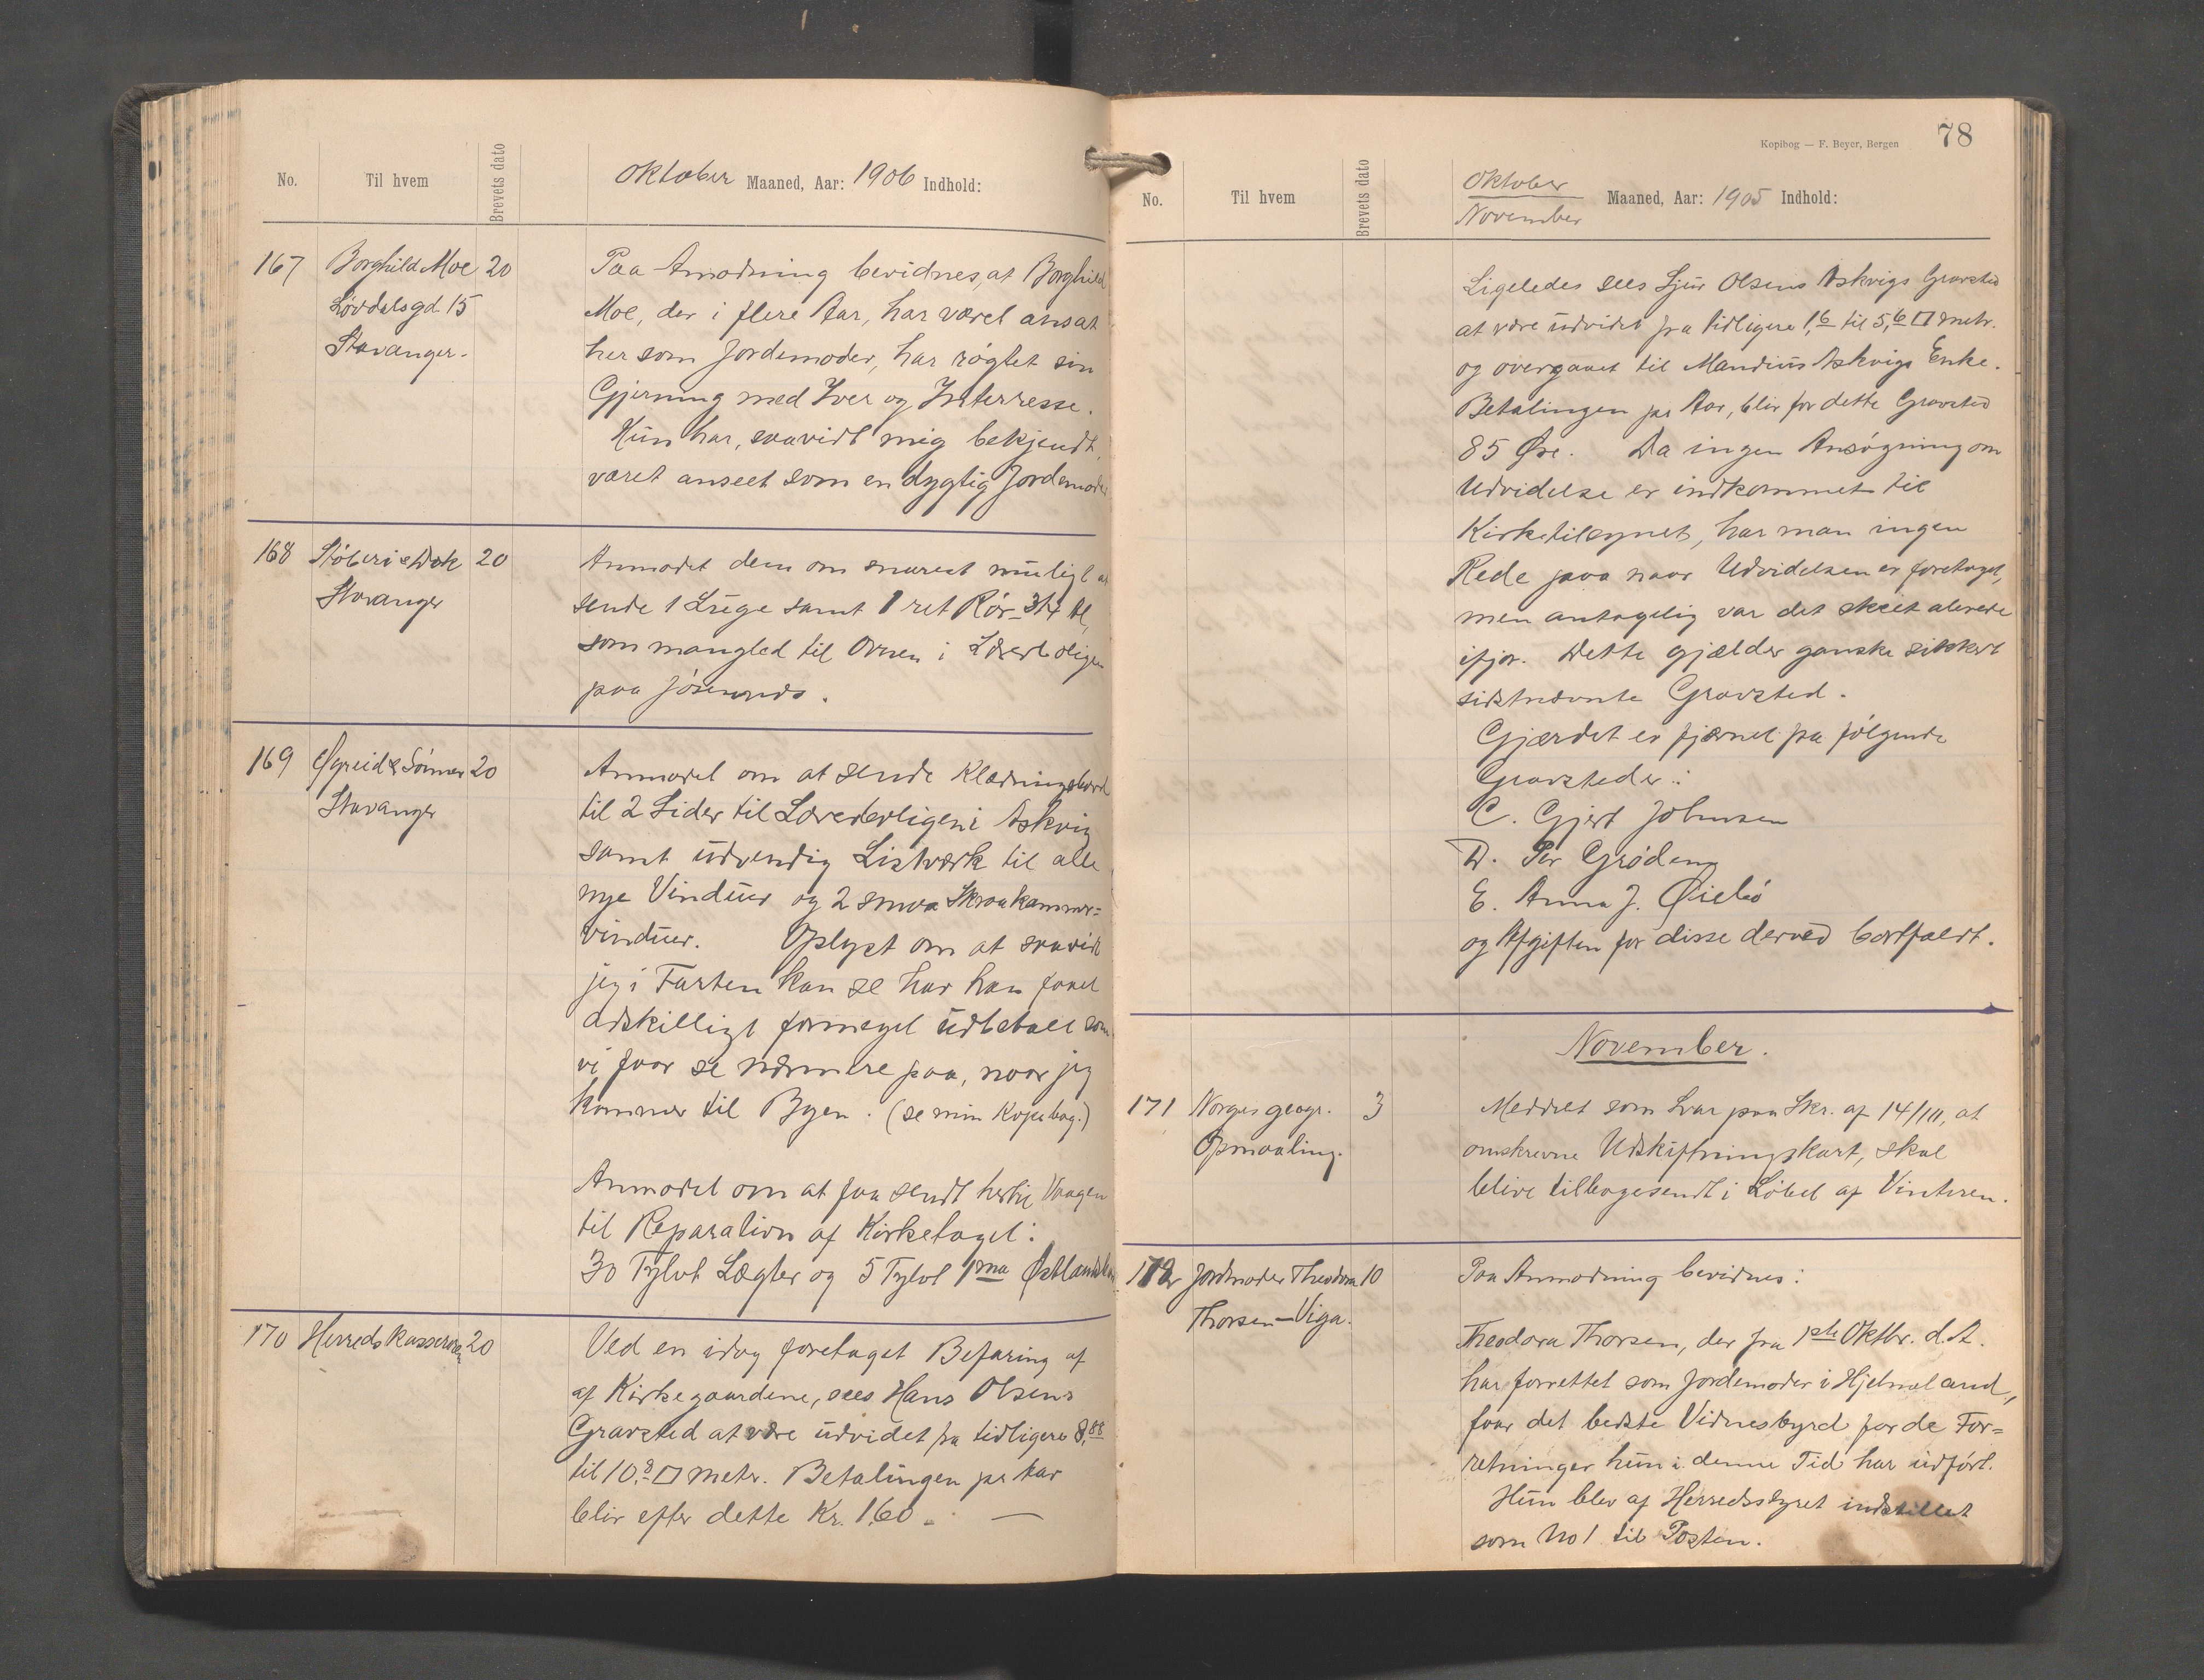 No.
Til hvem
Brevets dato
Oktober Maaned, Aar: 1906 Indhold:
167
Borghild Moe
20
Løvdalsgd. 15
Stavanger.
Paa Anmodning bevidnes, at Borghild
Moe, der i flere Aar, har været ansat
her som Jordemoder, har røgtet sin
Gjerning med Iver og Interresse.
Hun har, saavidt mig bekjendt,
været anseet som en dygtig Jordemoder
168
Støberi & Dok
20
Stavanger
Anmodet dem om snarest muligt at
sende 1 Luge samt 1 ret Rør
som mangled til Ovnen i Lærerboligen
paa Jøsenes.
169
Øgreid & Sønner
20
Stavanger
Anmodet om at sende Klædningsbord
til 2 Sider til Lærerboligen i Askvig
samt udvendig Listværk til alle
nye Vinduer og 2 smaa Skraakammer=
vinduer. Oplyst om at saavidt
jeg i Farten kan se har han faaet
adskilligt formeget udbetalt som
vi faar se nærmere paa, naar jeg
kommer til Byen. (se min Kopibog.)
Anmodet om at faa sendt hertil Vaagen
til Reparation af Kirketaget:
30 Tylvt Lægter og 5 Tylvt 1ma
170
Herredskassereren
20
Ved en idag foretaget Befaring af
af Kirkegaardene, sees Hans Olsens
Gravsted at være udvidet fra tidligere 8,88
til 10,8 □ meter. Betalingen pr Aar
blir efter dette Kr. 1,60. —
Kopibog — F. Beyer, Bergen
78
No.
Til hvem
Brevets dato
Oktober
November
Maaned, Aar: 1905 Indhold:
Ligeledes sees Sjur Olsens Askvigs Gravsted
at være udvidet fra tidligere 1,6 til 5,6 □ metr.
og overgaaet til Mandius Askvigs Enke.
Betalingen pr Aar, blir for dette Gravsted
85 Øre. Da ingen Ansøgning om
Udvidelse er indkommet til
Kirketilsynet, har man ingen
Rede paa naar Udvidelsen er foretaget,
men antagelig var det skeet allerede
ifjor. Dette gjælder ganske sikkert
sidstnævnte Gravsted.
Gjærdet er fjærnet fra følgende
Gravsteder:
C. Gjert Johnsen
D. Per Grødem
E. Anna J. Øiebø
og Afgiften for disse derved bortfaldt.
November.
171
Norges geogr.
3
Opmaaling.
Meddelt som Svar paa Skr. af 14/10, at
omskrevne Udskiftningskart, skal
blive tilbagesendt i Løbet af Vinteren.
172
Jordmoder Theodora
10
Thorsen — Viga.
Paa Anmodning bevidnes:
Theodora Thorsen, der fra 1ste Oktbr. d. A.
har forrettet som Jordemoder i Hjelmeland,
faar det bedste Vidnesbyrd for de For=
retninger hun i denne Tid har udført.
Hun blev af Herredsstyret indstillet
som No 1 til Posten.